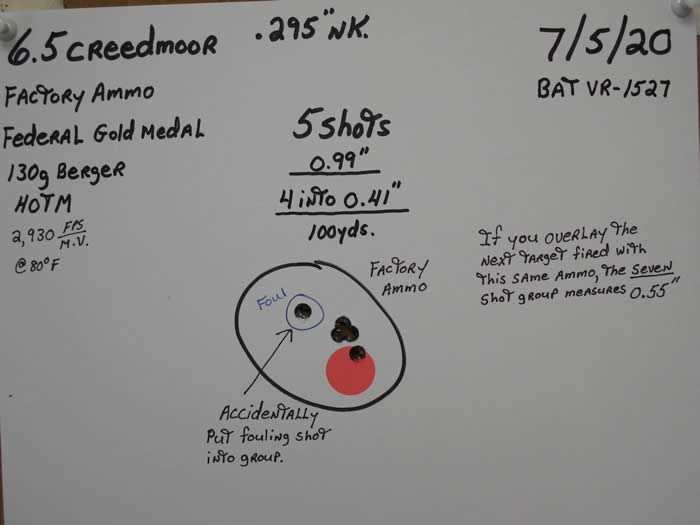 6.5 CREEDMOOR .295" NK.
7/5/20
BAT VR-1527
FACTORY AMMO
FEDERAL GOLD MEDAL
130g BERGER
HOTM
2,930 FPS
M.V.
@ 80°F
5 SHOTS
0.99"
4 INTO 0.41"
100yds.
If you OVERLAY THE
NEXT TARGET FIRED WITH
THIS SAME AMMO, THE SEVEN
SHOT GROUP MEASURES 0.55"
FACTORY
AMMO
Foul
ACCIDENTALLY
PUT fouling SHOT
INTO GROUP.